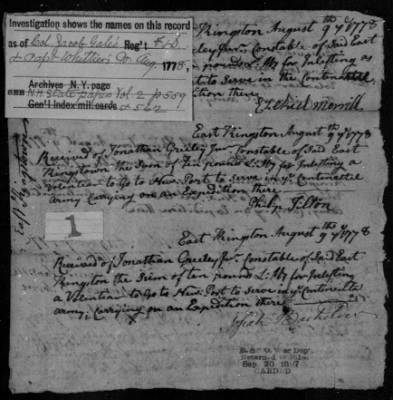 Investigation shows the names on this record
as of Col Jacob Gale's Reg't
& Capt Whittier's Co Aug. 1778,
Archives N.Y. page
see N.H. State papers Vol. 2 p 559
Gen'l index mil. cards
East Kington August th 9 1778
Constable of Sd East
pound L: My for Inlisting as
to Serve in the Continentle
tion there
Ezekiel Morrill
East Kington August th 9 yr 1778
Received of Jonathan Greeley Jur. Constable of Sd East
Kingtown the Sum of Ten pound L: My for Inlisting a
Volentier to Go to New Port to serve in ye Continettle
Army Carrying on an Expedition there
Philip Tilton
1
East Kington August th 9 yr 1778
Received of Jonathan Greeley Jur. Constable of Sd East
Kington the Sum of ten pound L: My for Inlisting
a Volentier to Go to New Port to Serve in ye Continentle
army, Carrying on an Expedition there
R. & P. O. War Dep't
Sep 20
CARDED